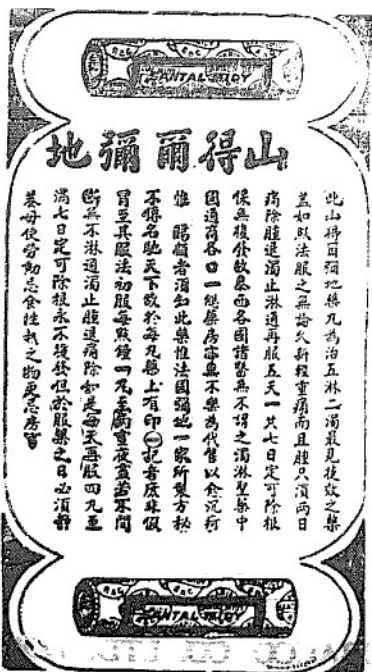 SANTAL MIDY
山得爾彌地
此山得爾彌地藥丸為治五淋二濁最見捷效之藥
蓋如照法服之無論久新輕重痛而且腫只須兩日
痛除腫退濁止淋通再服五天一共七日定可除根
保無復發故泰西各國諸醫無不謂之濁淋聖藥中
國通商各口一經藥房亦無不樂為代售以愈沉疴
惟 賜顧者須知此藥惟法國彌地一家所製方秘
不傳名馳天下故於每丸藥上有印記者庶非假
冒至其服法初服每點鐘一丸至兩晝夜若不間
斷無不淋通濁止腫退痛除如是每天再服四丸至
滿七日定可除根永不復發但於服藥之日必須靜
養毋使勞動忌食性熱之物更忌房
SANTAL MIDY